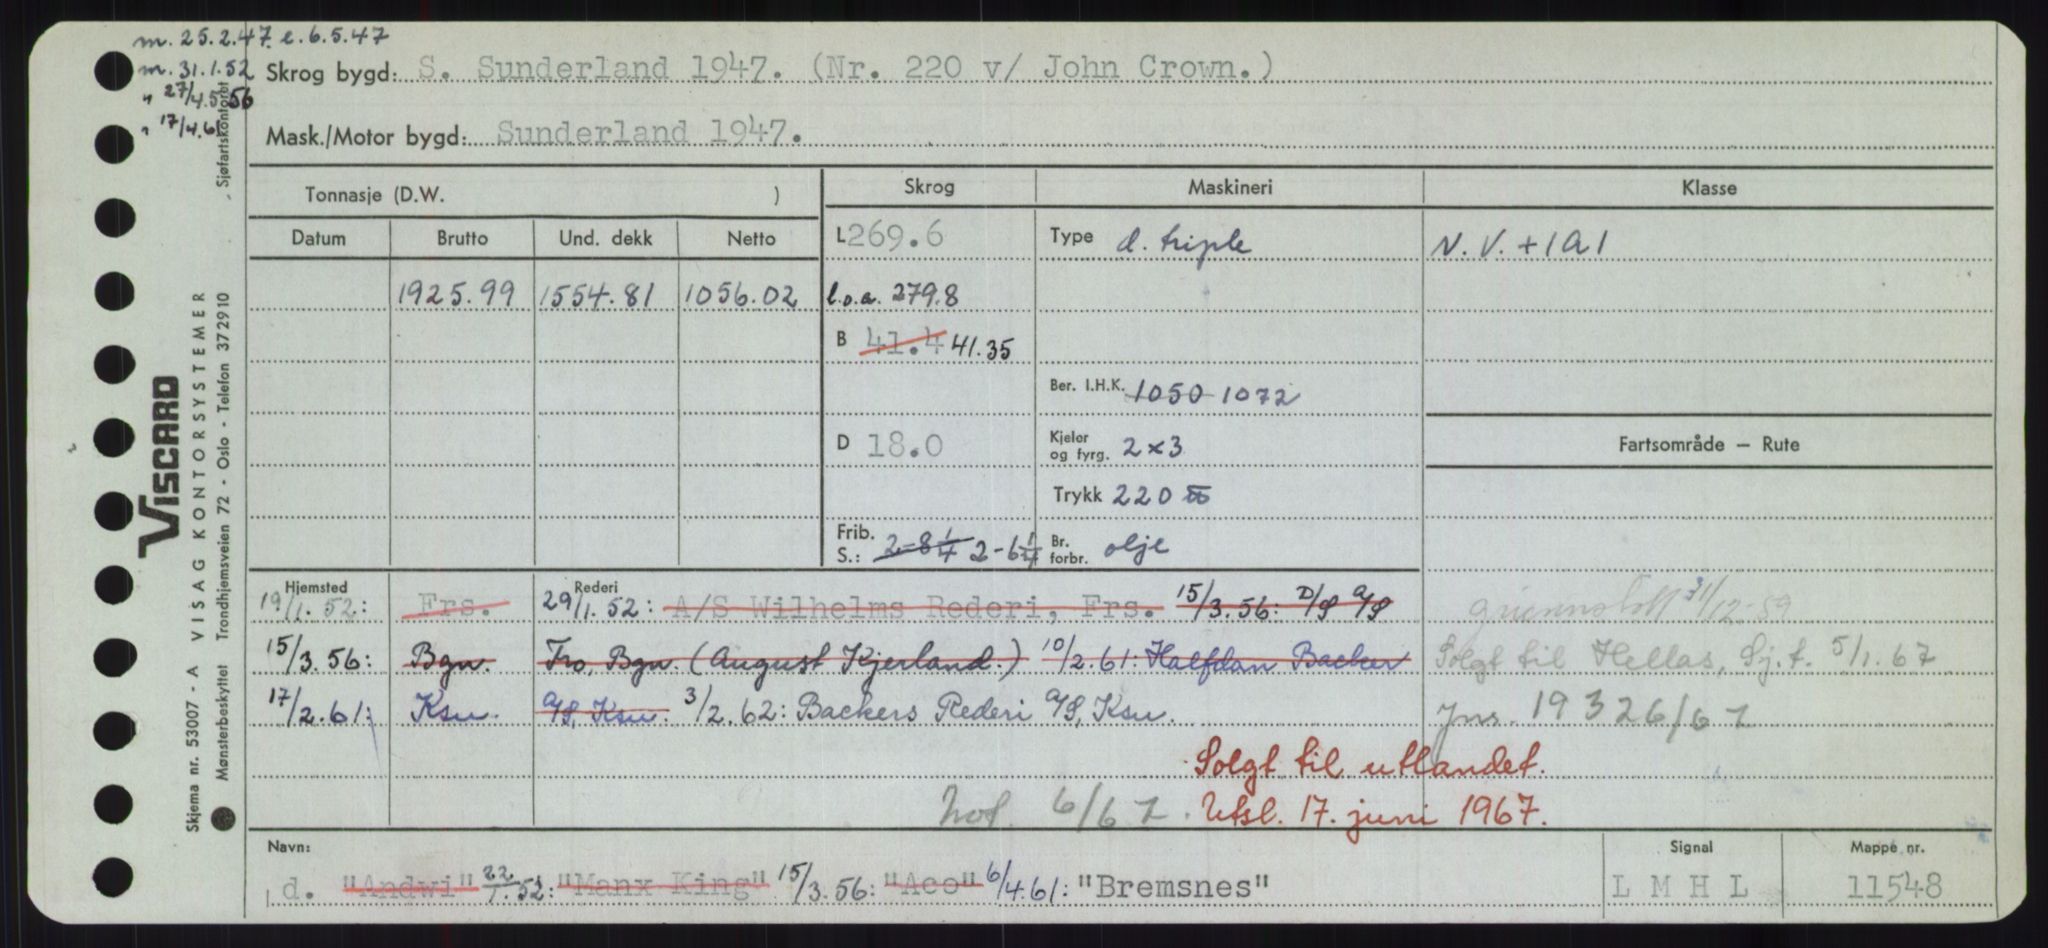 m. 25.2.47. e. 6.5.47
m. 31.1.52
" 27/4.5 56
" 17/4.61
Skrog bygd: S. Sunderland 1947. (Nr. 220 v/ John Crown.)
Mask./Motor bygd: Sunderland 1947.
Tonnasje (D.W. )
Skrog
Maskineri
Klasse
Datum
Brutto
Und. dekk
Netto
L 269.6
Type d. triple
N.V. + 1A1
1925.99
1554.81
1056.02
l.o.a. 279.8
B 41.4 41.35
Ber. I.H.K. 1050 1072
D 18.0
Kjeler og fyrg. 2x3
Fartsområde — Rute
Trykk 220 lb
Frib. S.: 2-8 1/4 2-6 1/4
Br. forbr. olje
Hjemsted
Rederi
19/1.52: Frs. 29/1.52: A/S Wilhelms Rederi, Frs. 15/3.56: D/S A/S
31/12-59
15/3.56: Bgn. Fro, Bgn. (August Kjerland.) 10/2.61: Halfdan Backer
Solgt til Hellas, Sj.f. 5/1.67
17/2.61: Ksu. A/S, Ksu. 3/2.62: Backers Rederi A/S, Ksu.
Jnr. 19326/67
Solgt til utlandet.
6/67. Utsl. 17. juni 1967.
Navn:
Signal
Mappe nr.
d. "Andwi" 22/1.52: "Manx King" 15/3.56: "Aco" 6/4.61: "Bremsnes"
L M H L
11548
VISCARD
Skjema nr. 53007 - A VISAG KONTORSYSTEMER
Mønsterbeskyttet Trondhjemsveien 72 - Oslo - Telefon 372910
Sjøfartskontoret